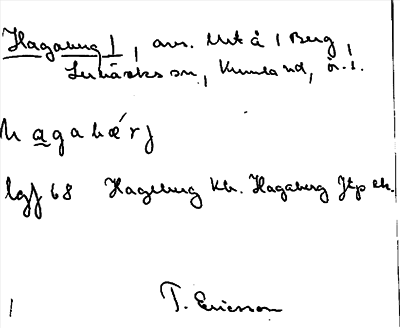 Hagaberg 1, avs. Mtå i Berg,
Lerbäcks sn, Kumla hd, Ör. l.
hagabǽrj
lgf 68 Hagaberg Kb. Hagaberg Jtp ek.
T. Ericsson